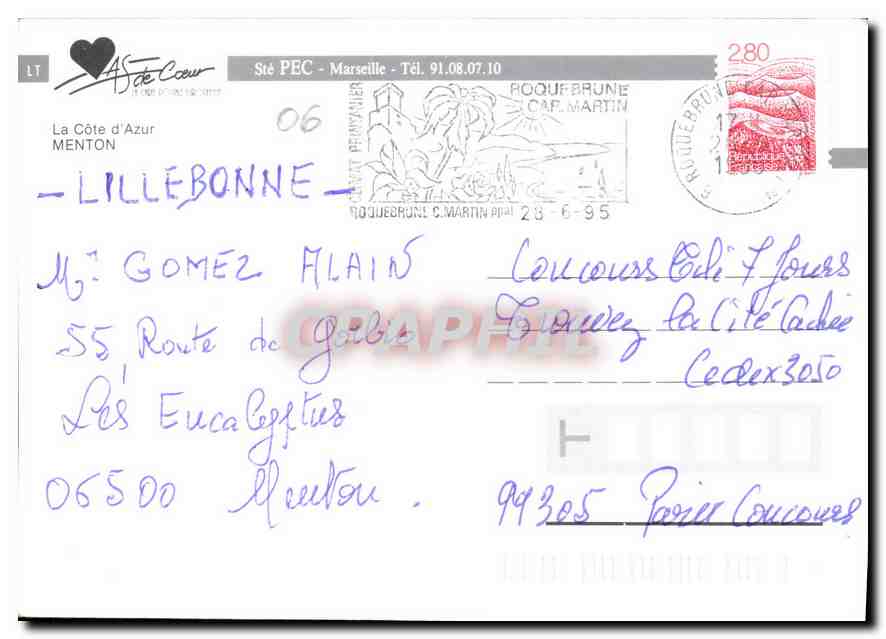 LT
AS de Cœur
Sté PEC - Marseille - Tél. 91.08.07.10
2,80
La Côte d'Azur
MENTON
06
CLIMAT PRINTANIER
ROQUEBRUNE
CAP. MARTIN
ROQUEBRUNE C.MARTIN PPAL 28-6-95
République
- LILLEBONNE -
Mr GOMEZ ALAIN
55 Route de Gorbio
Les Eucalyptus
06500 Menton.
Concours Télé 7 Jours
Trouvez la Cité Cachée
Cedex 3050
99305 Paris Concours
CPAPHIL